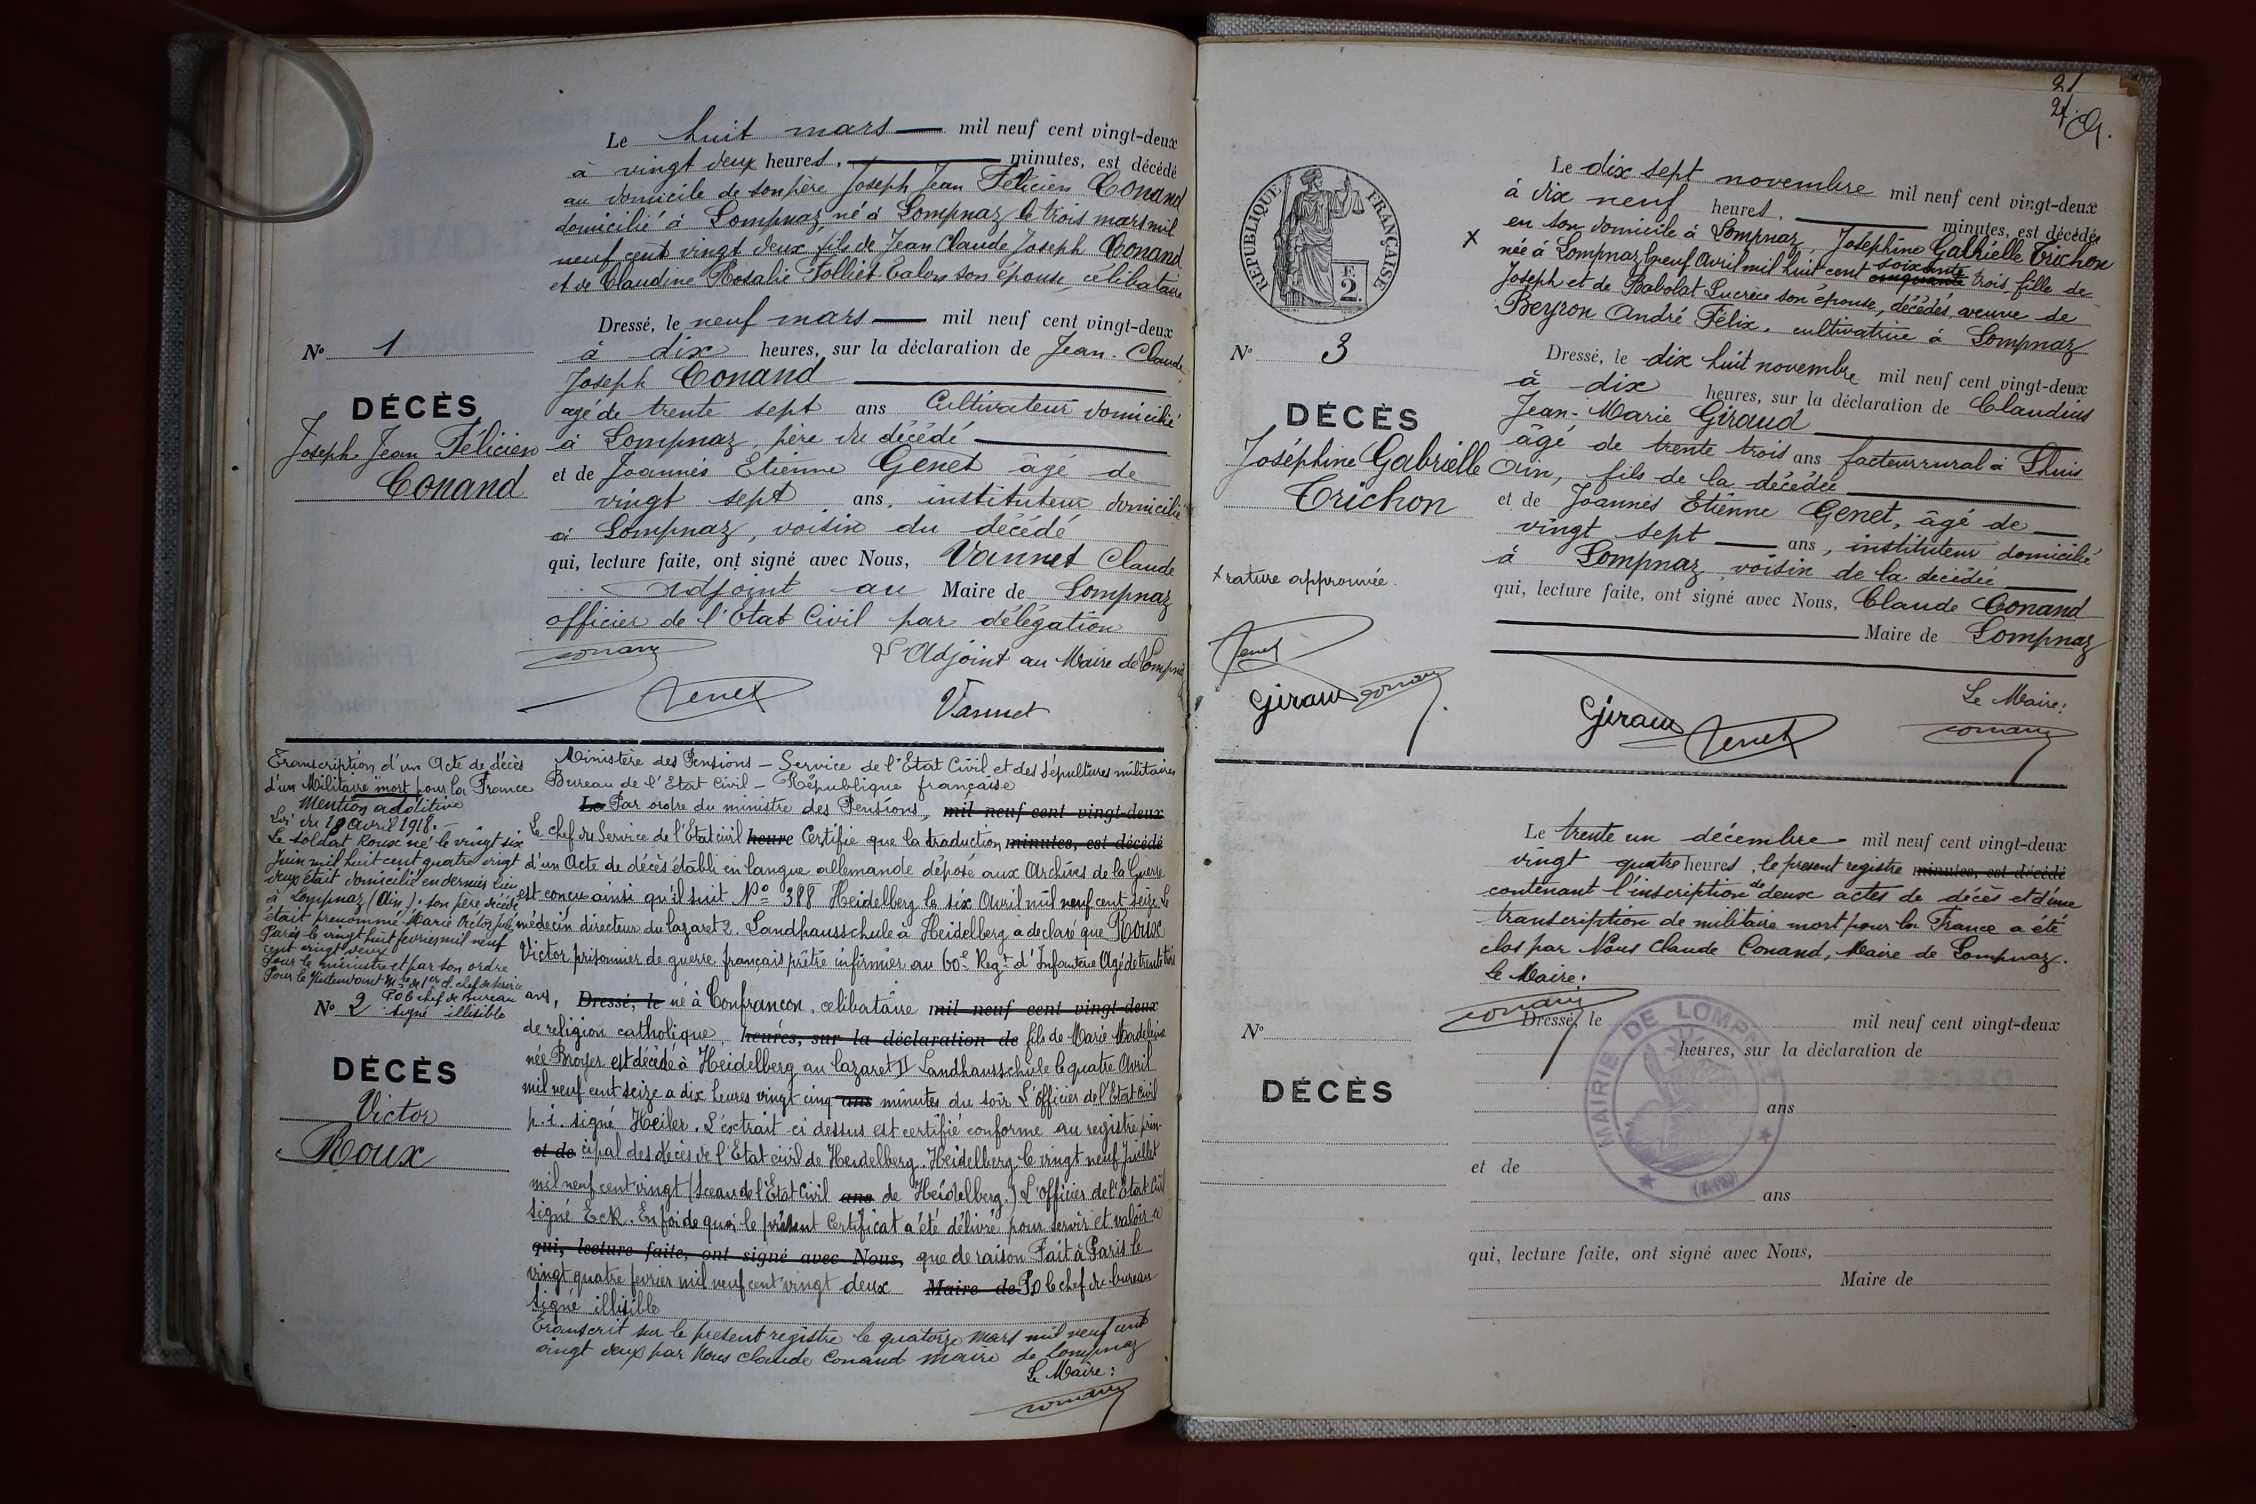 Le huit mars mil neuf cent vingt-deux
à vingt deux heures, minutes, est décédé
au domicile de son père Joseph Jean Félicien Conand
domicilié à Lompnaz, né à Lompnaz le trois mars mil
neuf cent vingt deux fils de Jean Claude Joseph Conand
et de Claudine Rosalie Folliet son épouse, célibataire
Dressé, le neuf mars mil neuf cent vingt-deux
N° 1
à dix heures, sur la déclaration de Jean-Claude
Joseph Conand
DÉCÈS
agé de trente sept ans Cultivateur domicilié
Joseph Jean Félicien
à Lompnaz, père du décédé
Conand
et de Joannès Etienne Genet âgé de
vingt sept ans, instituteur domicilié
à Lompnaz, voisin du décédé
qui, lecture faite, ont signé avec Nous, Vannet Claude
adjoint au Maire de Lompnaz
officier de l'Etat Civil par délégation
Conand
L'Adjoint au Maire de Lompnaz
Genet
Vannet
Transcription d'un Acte de décès
d'un Militaire mort pour la France
Mention additive
Loi du 18 Avril 1918.-
Le soldat Roux né le vingt six
Juin mil huit cent quatre vingt
deux était domicilié en dernier lieu
à Lompnaz (Ain); son père décédé
était prenommé Marie Victor
Paris le vingt huit fevrier mil neuf
cent vingt deux
Pour le ministre et par son ordre
Pour le chef de service
P.O le chef de Bureau
signé illisible
N° 2
DÉCÈS
Victor
Roux
Ministère des Pensions – Service de l'Etat Civil et des Sépultures militaires
Bureau de l'Etat Civil – République française
Le Par ordre du ministre des Pensions, mil neuf cent vingt-deux
Le chef du Service de l'Etat civil heure Certifie que la traduction minutes, est décédé
d'un Acte de décès établi en langue allemande déposé aux Archives de la Guerre
est conçu ainsi qu'il suit N° 388 Heidelberg le six Avril mil neuf cent seize Le
médecin directeur du lazaret 2. Landhausschule à Heidelberg a declaré que Roux
Victor prisonnier de guerre français prêtre infirmier au 60e Regt d'Infanterie Agé de trente trois
ans, Dressé, le né à Confrançon, célibataire mil neuf cent vingt-deux
de religion catholique, heures, sur la déclaration de fils de Marie Madeleine
née Broyer est décédé à Heidelberg au lazaret II Landhausschule le quatre Avril
mil neuf cent seize a dix heures vingt cinq ans minutes du soir L'officier de l'Etat civil
p.i. signé Heiler. L'extrait ci dessus est certifié conforme au registre prin-
et de cipal des décès de l'Etat civil de Heidelberg. Heidelberg le vingt neuf Juillet
mil neuf cent vingt (Sceau de l'Etat Civil ans de Heidelberg.) L'officier de l'Etat Civil
signé Eck. En foi de quoi le présent Certificat a été délivré pour servir et valoir ce
qui, lecture faite, ont signé avec Nous, que de raison Fait à Paris le
vingt quatre fevrier mil neuf cent vingt deux Maire de P.O le chef du bureau
Signé illisible
Transcrit sur le present registre le quatorze mars mil neuf cent
vingt deux par Nous Claude Conand maire de Lompnaz
Le Maire:
Conand
21
REPUBLIQUE FRANÇAISE
F.
2.
Le dix sept novembre mil neuf cent vingt-deux
à dix neuf heures, minutes, est décédée
x en son domicile à Lompnaz, Joséphine Gabrielle Trichon
née à Lompnaz le neuf Avril mil huit cent cinquante soixante trois, fille de
Joseph et de Rabolat Lucrèce son épouse, décédés, veuve de
Beyron André Félix, cultivatrice à Lompnaz
N° 3
Dressé, le dix huit novembre mil neuf cent vingt-deux
à dix heures, sur la déclaration de Claudius
DÉCÈS
Jean-Marie Giraud
âgé de trente trois ans facteur rural à Lhuis
Joséphine Gabrielle
Ain, fils de la décédée
Trichon
et de Joannès Etienne Genet, âgé de
vingt sept ans, instituteur domicilié
à Lompnaz, voisin de la décédée
x rature approuvée.
qui, lecture faite, ont signé avec Nous, Claude Conand
Maire de Lompnaz
Genet
Giraud Conand
Giraud Genet
Le Maire:
Conand
Le trente un décembre mil neuf cent vingt-deux
vingt quatre heures, le present registre minutes, est décédé
contenant l'inscription de deux actes de décès et d'une
transcription de militaire mort pour la France a été
clos par Nous Claude Conand, Maire de Lompnaz.
Le Maire:
Conand
Dressé, le mil neuf cent vingt-deux
N°
heures, sur la déclaration de
DÉCÈS
ans
et de
ans
qui, lecture faite, ont signé avec Nous,
Maire de
MAIRIE DE LOMP
(AIN)